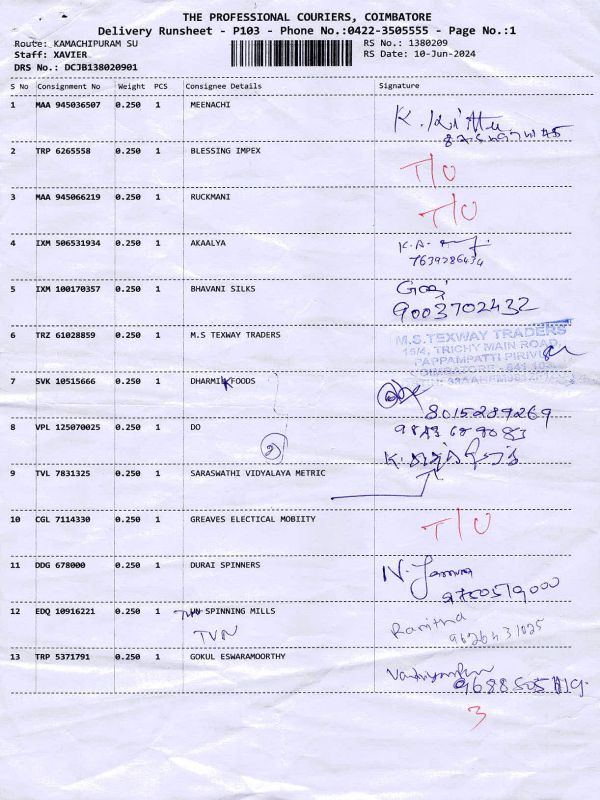 THE PROFESSIONAL COURIERS, COIMBATORE
Delivery Runsheet - P103 - Phone No.:0422-3505555 - Page No.:1
Route: KAMACHIPURAM SU RS No.: 1380209
Staff: XAVIER RS Date: 10-Jun-2024
DRS No.: DCJB138020901
S No Consignment No Weight PCS Consignee Details Signature
1 MAA 945036507 0.250 1 MEENACHI
2 TRP 6265558 0.250 1 BLESSING IMPEX T/O
3 MAA 945066219 0.250 1 RUCKMANI T/O
4 IXM 506531934 0.250 1 AKAALYA K.A.
7639286434
5 IXM 100170357 0.250 1 BHAVANI SILKS
9003702432
6 TRZ 61028859 0.250 1 M.S TEXWAY TRADERS M.S.TEXWAY TRADERS
16/4, TRICHY MAIN ROAD
PAPPAMPATTI PIRIVU
7 SVK 10515666 0.250 1 DHARMIL FOODS
8015289269
8 VPL 125070025 0.250 1 DO
2
9 TVL 7831325 0.250 1 SARASWATHI VIDYALAYA METRIC
10 CGL 7114330 0.250 1 GREAVES ELECTICAL MOBIITY T/O
11 DDG 678000 0.250 1 DURAI SPINNERS N.
9750519000
12 EDQ 10916221 0.250 1 SPINNING MILLS
TVN 9626431025
13 TRP 5371791 0.250 1 GOKUL ESWARAMOORTHY
3